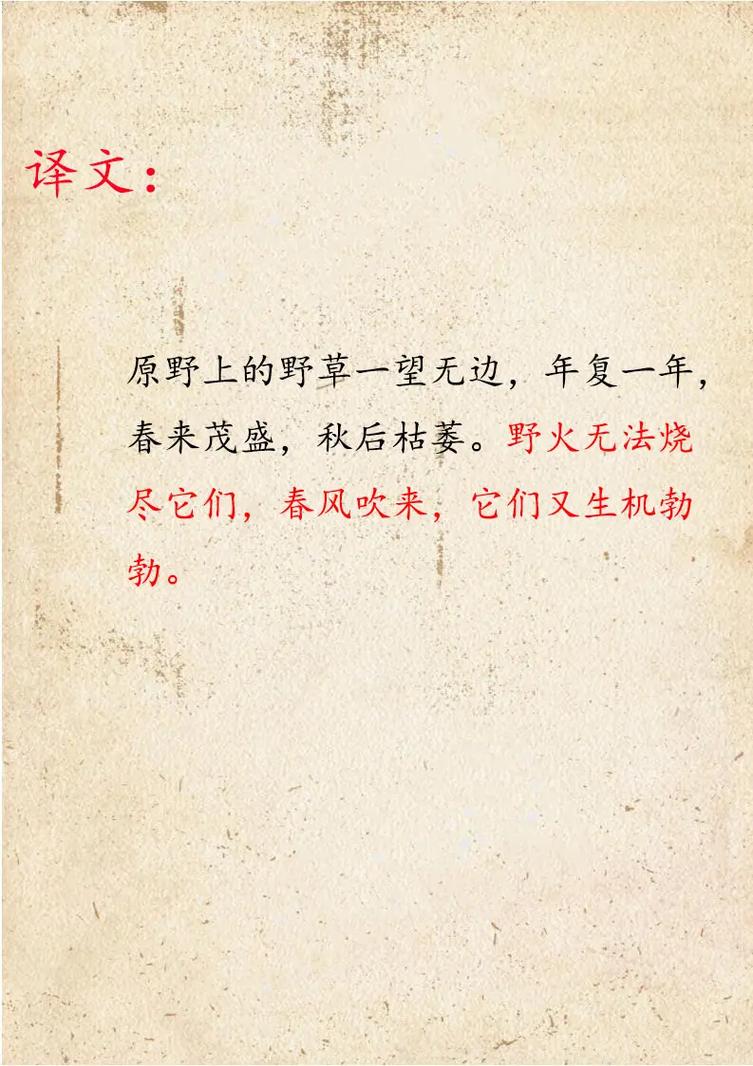 译文：
原野上的野草一望无边，年复一年，
春来茂盛，秋后枯萎。野火无法烧
尽它们，春风吹来，它们又生机勃
勃。